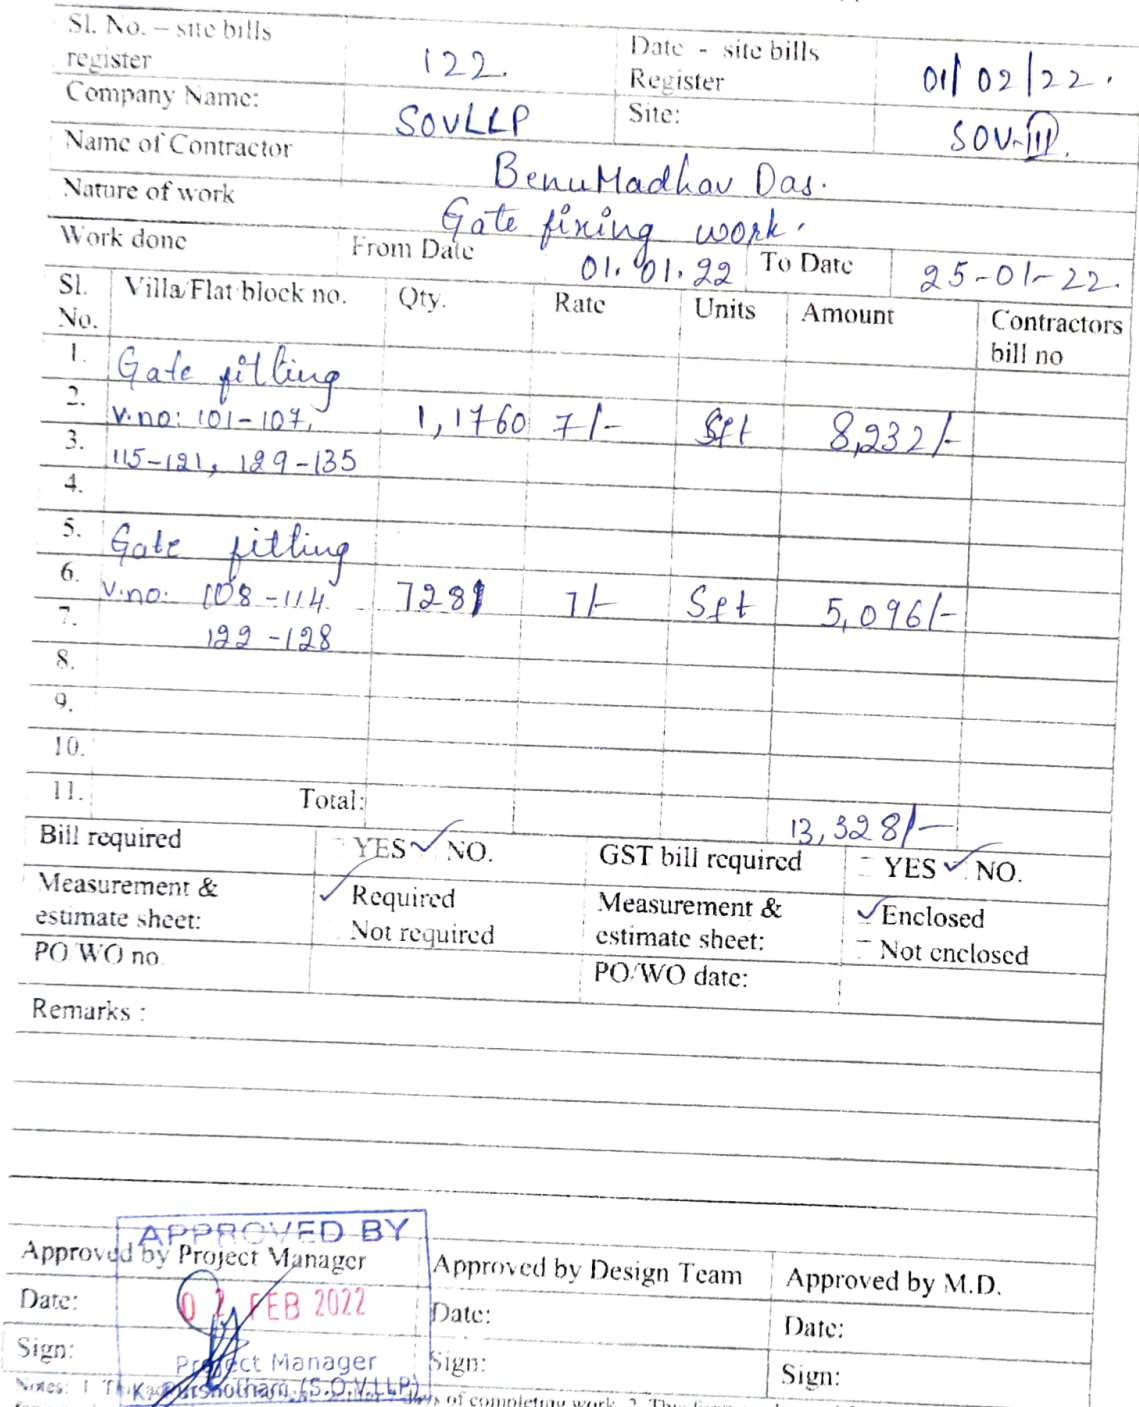 Sl. No. – site bills register 122. Date - site bills Register 01/02/22.
Company Name: SOVLLP Site: SOV-III.
Name of Contractor BenuMadhav Das.
Nature of work Gate fixing work.
Work done From Date 01.01.22 To Date 25-01-22.
Sl. No. Villa/Flat block no. Qty. Rate Units Amount Contractors bill no
1. Gate fitting
2. V.no: 101-107, 1,1760 7/- Sft 8,232/-
3. 115-121, 129-135
4.
5. Gate fitting
6. V.no: 108-114 7281 7/- Sft 5,096/-
7. 122-128
8.
9.
10.
11. Total: 13,328/-
Bill required YES NO. GST bill required YES NO.
Measurement & estimate sheet: Required Not required Measurement & estimate sheet: Enclosed Not enclosed
PO/WO no. PO/WO date:
Remarks :
APPROVED BY
Approved by Project Manager Approved by Design Team Approved by M.D.
Date: 02 FEB 2022 Date: Date:
Sign: Project Manager Sign: Sign:
K. Purshotham (S.O.V.LLP)
Notes: 1. days of completing work. 2. This